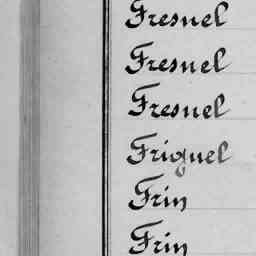 Fresnel
Fresnel
Fresnel
Friquel
Frin
Frin